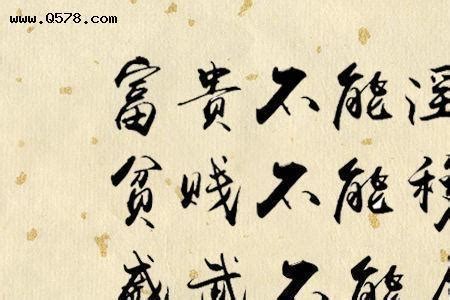 www.Q578.com
富貴不能淫
贫贱不能移
威武不能屈